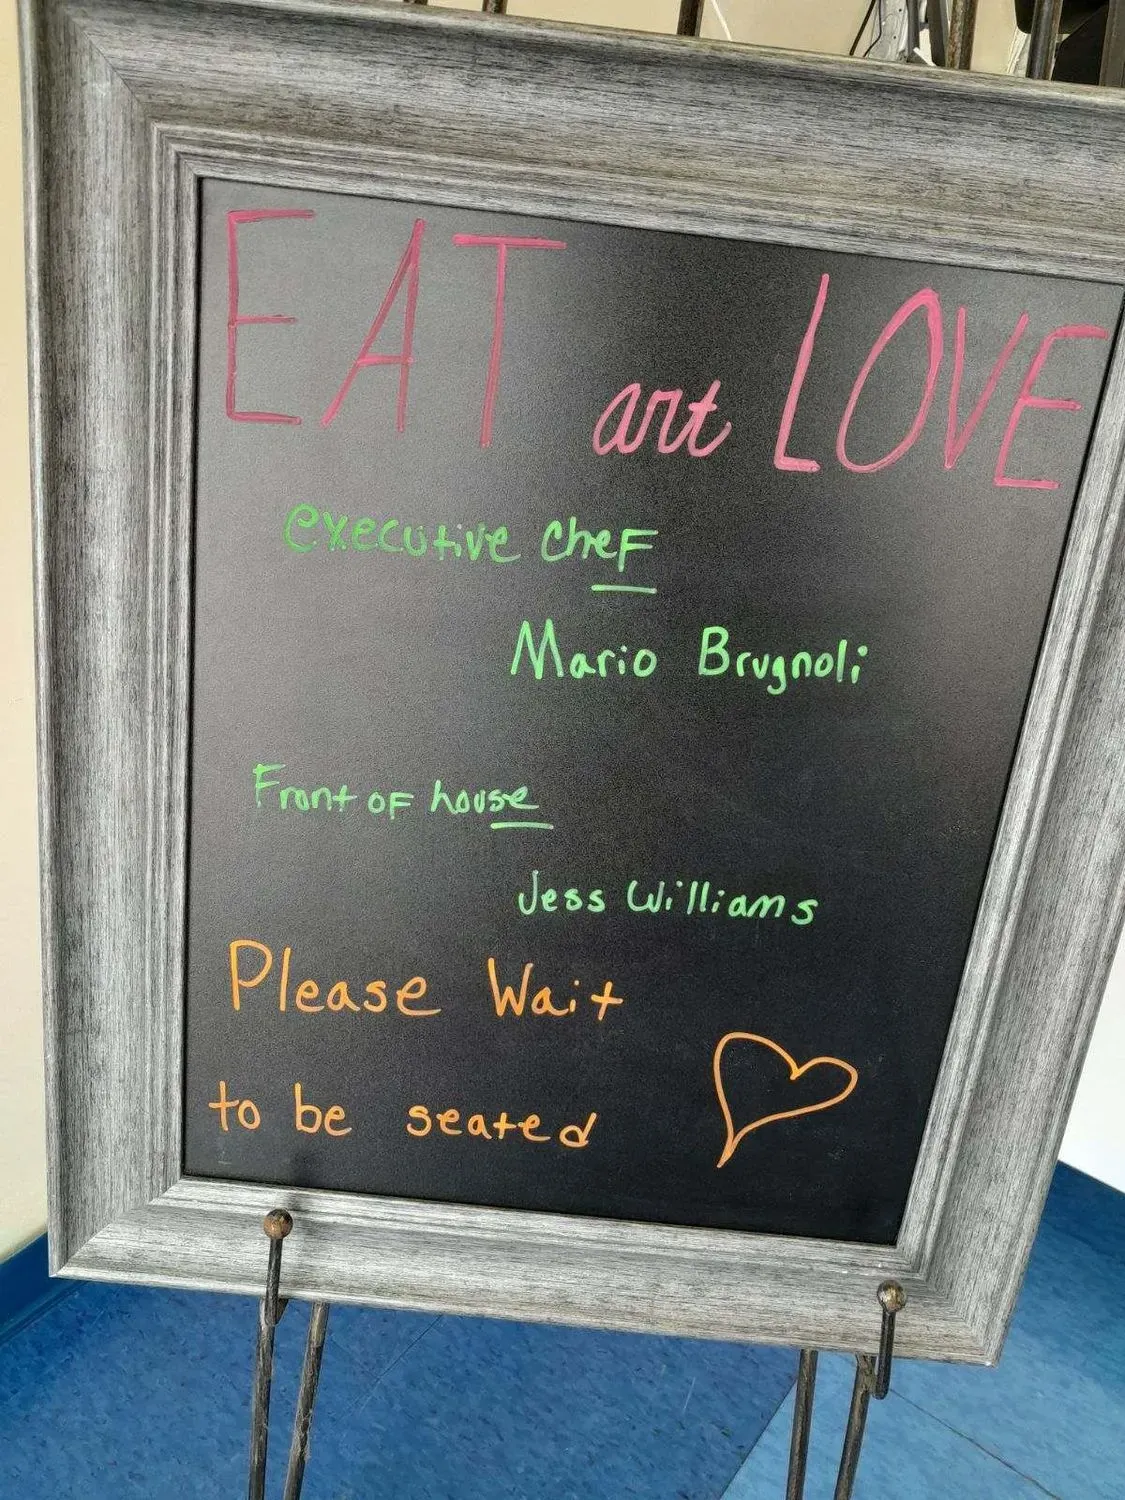 EAT art LOVE
executive cheF
Mario Brugnoli
Front oF house
Jess Williams
Please Wait
to be seated